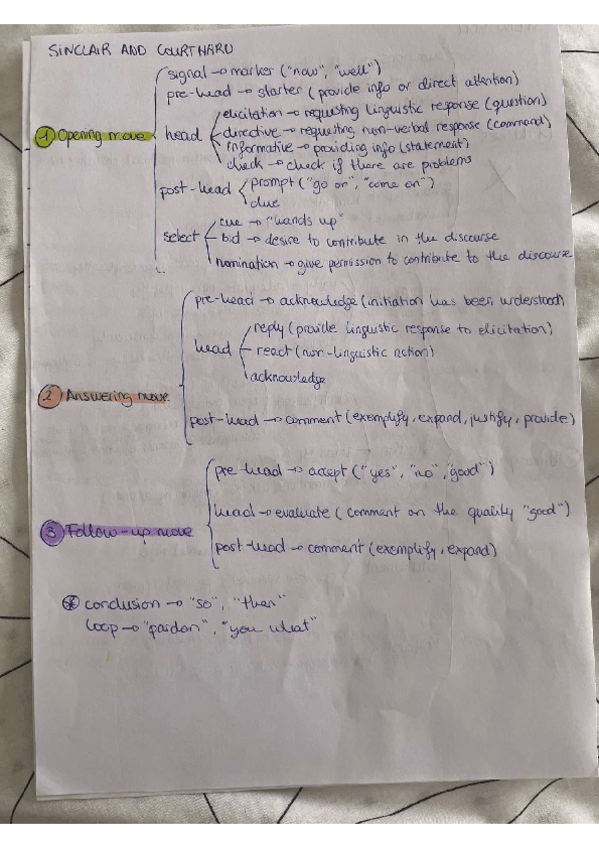 SINCLAIR AND COURTHARD
signal → marker ("now", "well")
pre-head → starter (provide info or direct attention)
① Opening move
head
elicitation → requesting linguistic response (question)
directive → requesting non-verbal response (command)
informative → providing info (statement)
check → check if there are problems
post-head
prompt ("go on", "come on")
clue
select
cue → "hands up"
bid → desire to contribute in the discourse
nomination → give permission to contribute to the discourse
② Answering move
pre-head → acknowledge (initiation has been understood)
head
reply (provide linguistic response to elicitation)
react (non-linguistic action)
acknowledge
post-head → comment (exemplify, expand, justify, provide)
③ Follow-up move
pre-head → accept ("yes", "no", "good")
head → evaluate (comment on the quality "good")
post-head → comment (exemplify, expand)
* conclusion → "so", "then"
loop → "pardon", "you what"